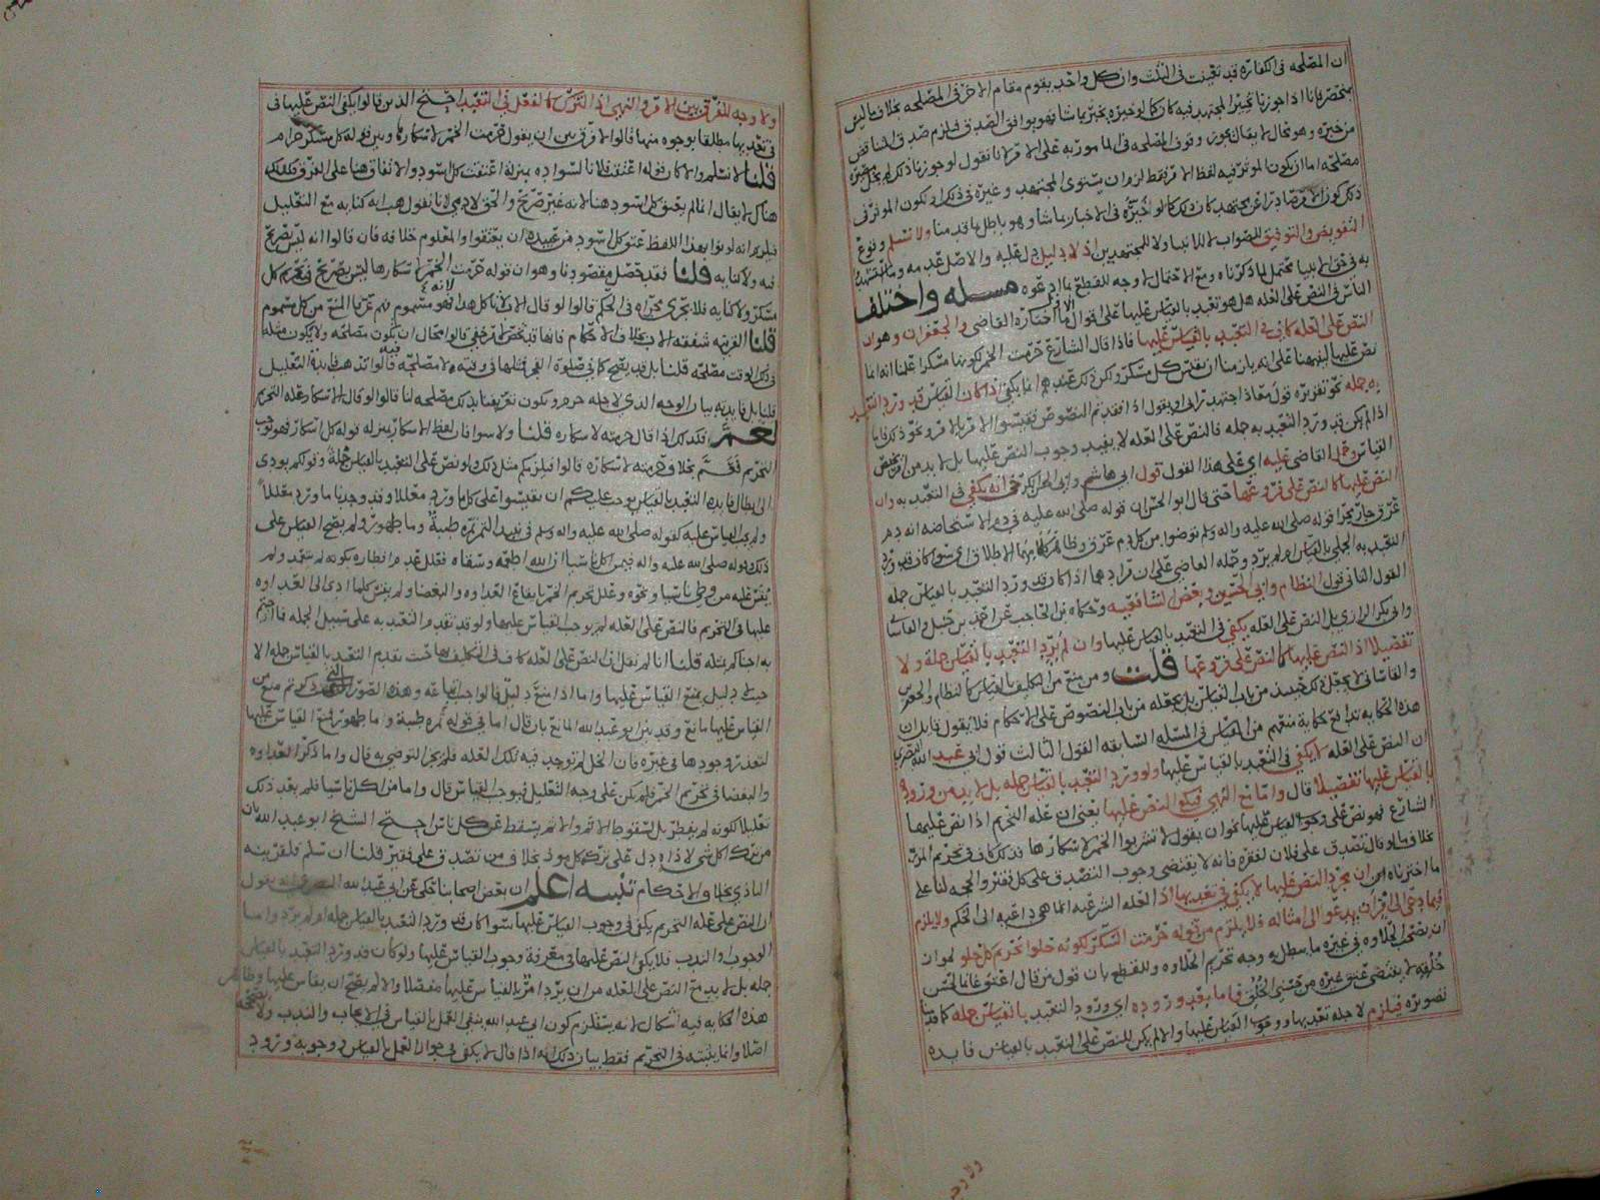 ان المصلحه في الكفاره قد تعينت في الثلث وان كل واحد يقوم مقام الاخر في المصلحه بخلاف ما ليس
بمنحصر فانا اذا جوزنا تخيير المجتهد فيه كان كما لو خيره يخبر بما شا فهو يوافق الصدق فلزم صدق المناقض
من خبره وهو محال لا يقال نجوز وقوف المصلحه في المامور به على الامر لانا نقول لو جوزنا ذلك لم يخل
مصلحه اما ان يكون المؤثر فيه لفظ الامر فقط لزم ان يستوي المجتهد وغيره في ذلك او يكون المؤثر في
ذلك كون الامر صادرا عن مجتهد كان ذلك كما لو خيره في الاخبار بما شا وهو باطل بما قدمنا ولا نسلم وقوع
التفويض والتوفيق للصواب الا للانبيا ولا للمجتهدين اذ لا دليل دل عليه والاصل عدمه وما
به في حق الانبيا محتمل لما ذكرناه ومع الاحتمال لا وجه للقطع بما ادعوه مسله واختلف
الناس في النص على العله هل هو تعبد بالقياس عليها على اقوال الاول ما اختاره القاضي والجعفران وهو ان
النص على العله كاف في التعبد بالقياس عليها فاذا قال الشارع حرمت الخمر لكونها مسكرا علمنا انه انما
نص عليها لينبهنا على انه يلزمنا ان نقيس كل مسكر ولكن ذلك عندهم انما يكفي اذا كان القياس قد ورد التعبد
به جمله نحو تقريره قول معاذ اجتهد رايى او يقول اذا فقدتم النصوص فقيسوا الامر بالامر ونحو ذلك فاما
اذا لم يكن قد ورد التعبد به جمله فالنص على العله لا يفيد وجوب النص عليها بل لا بد من
القياس وحمل القاضي عليه اي على هذا القول قول ابي هاشم وابي الحسن الكرخي انه يكفي في التعبد به وان
النص عليها كالنص على فروعها حتى قال ابو الحسن ان قوله صلى الله عليه في دم الاستحاضه انه دم
عرق جار مجرا قوله صلى الله عليه واله وسلم توضوا من كل دم عرق وظاهر كلامهما الاطلاق اي سوا كان قد ورد
التعبد به الجملي بالقياس ام لم يرد وحمله القاضي على ان مرادهما اذا كان قد ورد التعبد بالقياس جمله
القول الثاني قول النظام وابي الحسين وبعض الشافعيه وحكاه ابن الحاجب عن احمد بن حنبل والقاساني
وابي بكر الرازي بل النص على العله يكفي في التعبد بالقياس عليها وان لم يرد التعبد بالقياس جمله ولا
تفصيلا اذ النص عليها كالنص على فروعها قلت ومن منع من التكليف بالقياس كالنظام والجعفرين
والقاساني لا يجعل ذلك حينئذ من باب القياس بل يجعله من باب النصوص على الاحكام فلا يقول قايل ان
هذه الحكايه تدافع حكاية منعهم من القياس في المسله السابقه القول الثالث قول ابي عبد الله البصري
ان النص على العله لا يكفي في التعبد بالقياس عليها ولو ورد التعبد بالقياس جمله بل لا بد من وروده
بالقياس عليها تفصيلا قال واما مع النهي فيكفي النص عليها يعني ان علة التحريم اذا نص عليها
الشارع فهو نص على وجوب القياس عليها نحو ان يقول لا تشربوا الخمر لاسكارها فذلك كاف في تحريم المزر
بخلاف ما لو قال تصدق على فلان لفقره فانه لا يقتضي وجوب التصدق على كل فقير والحجه لنا على
ما اخترناه اي ان مجرد النص عليها لا يكفي في تعديها اذ العله الشرعيه انما هي داعيه الى الحكم ولا يلزم
فيما دعى الى امر ان يدعو الى امثاله فلا يلزم من قوله حرمت السكر لكونه حلوا تحريم كل حلو لجواز
ان يقتضي الحلاوه في غيره ما يبطل به وجه تحريم الحلاوه وللقطع بان قول من قال اعتق غانما لحسن
خلقه لا يقتضي عتق غيره من حسني الخلق فاما بعد وروده اي ورود التعبد بالقياس جمله كما قدمنا
تصويره فيلزم لاجله تعديها ووجوب القياس عليها والا لم يكن للنص على التعبد بالقياس فايده
ولا وجه للفرق بين الامر والنهي اذ الترك كالفعل في التعبد احتج الذين قالوا يكفي النص عليها في
في تعديها مطلقا بوجوه منها قالوا لا فرق بين ان يقول حرمت الخمر لاسكارها وبين قوله كل مسكر حرام
قلنا لا نسلم والا كان قوله اعتقت فلانا لسواده بمنزلة اعتقت كل اسود والاتفاق هنا على الفرق فكذلك
هناك لا يقال انما لم يعتق كل اسود هنا لانه غير صريح والحق لادمي لانا نقول هب انه كنايه مع التعليل
فيلزم انه لو نوى بهذا اللفظ عتق كل اسود من عبيده ان يعتقوا والمعلوم خلافه فان قالوا انه ليس بصريح
فيه ولا كنايه قلنا فقد حصل مقصودنا وهو ان قوله حرمت الخمر لاسكارها ليس بصريح في تحريم كل
مسكر ولا كنايه فلا يجري مجراه في الحكم قالوا لو قال الاب لا تاكل هذا فهو مسموم فهم عرفا المنع من كل مسموم
قلنا لقرينه شفقة الاب بخلاف الاحكام فانها قد تختص لامر خفي قالوا محال ان يكون مصلحه ولا يكون مثله
في ذلك الوقت مصلحه قلنا بل قد يصح كما في صلوة الفجر مثلها في وقته ولا مصلحه فيه قالوا تذهب فايدة التعليل
قلنا بل فايدته بيان الوجه الذي لاجله حرم ويكون تعريفنا بذلك مصلحه لنا قالوا لو قال الاسكار علة التحريم
لعم فكذلك اذا قال حرمته لاسكاره قلنا ولا سوا فان لفظ الاسكار بمنزله قوله كل اسكار فهو يوجب
التحريم فعم بخلاف حرمته لاسكاره قالوا فيلزمكم مثل ذلك ولو نص على التعبد بالقياس جملة وقولكم يودي
الى ابطال فايدة التعبد بالقياس يوجد عليكم ان تقيسوا على كل ما ورد معللا وقد وجدنا ما ورد معللا
ولم يجب القياس عليه كقوله صلى الله عليه واله وسلم في نبيذ التمر ثمرة طيبة وما طهور ولم يصح القياس على
ذلك وقوله صلى الله عليه واله فيمن اكل ناسيا ان الله اطعمه وسقاه فعلل عدم افطاره بكونه لم يتعمد ولم
يقس عليه من وطئ ناسيا ونحوه وعلل تحريم الخمر بايقاع العداوه والبغضا ولم يقس كلما ادى الى العداوه
عليها في التحريم فالنص على العله لم يوجب القياس عليها ولو قد تقدم التعبد به على سبيل الجمله فما اجبتم
به اجبناكم بمثله قلنا انا لم نقل ان النص على العله كاف في التكليف بها حيث تقديم التعبد بالقياس جمله الا
حيث لا دليل يمنع القياس عليها واما اذا منع دليل فالواجب اتباعه وهذه الصور التي ذكرتم منع من
القياس عليها مانع وقد بين ابو عبد الله المانع بان قال اما في قوله ثمره طيبة وما طهور فمنع القياس عليها
لتعذر وجودها في غيره فان الخل لم توجد فيه تلك العله فلم يجز التوضي به قال واما ذكر العداوه
والبغضا في تحريم الخمر فلم يكن على وجه التعليل فيوجب القياس قال واما من اكل ناسيا فلم يعد ذلك
تعليلا لكونه لم يفطر بل لسقوط الاثم والاثم يسقط عن كل ناس احتج الشيخ ابو عبد الله بان
من ترك اكل شي لاذاه دل على تركه كل موذ بخلاف من تصدق على فقير قلنا ان سلم فلقرينه
التاذي بخلاف الاحكام تنبيه اعلم ان بعض اصحابنا حكى عن ابي عبد الله البصري انه يقول
ان النص على علة التحريم يكفي في وجوب القياس عليها سوا كان قد ورد التعبد بالقياس جمله ام لم يرد واما
الوجوب والندب فلا يكفي النص عليهما في معرفة وجوب القياس عليها ولو كان قد ورد التعبد بالقياس
جمله بل لا بد مع النص على العله من ان يرد امر بالقياس عليها مفصلا والا لم يصح ان يقاس عليها وظاهر
هذه الحكايه فيه اشكال لانه يستلزم كون ابي عبد الله ينفي العمل بالقياس في الايجاب والندب ولا يصححه
اصلا وانما يثبته في التحريم فقط بيان ذلك انه اذا قال لا يكفي في جواز العمل بالقياس ووجوبه ورود